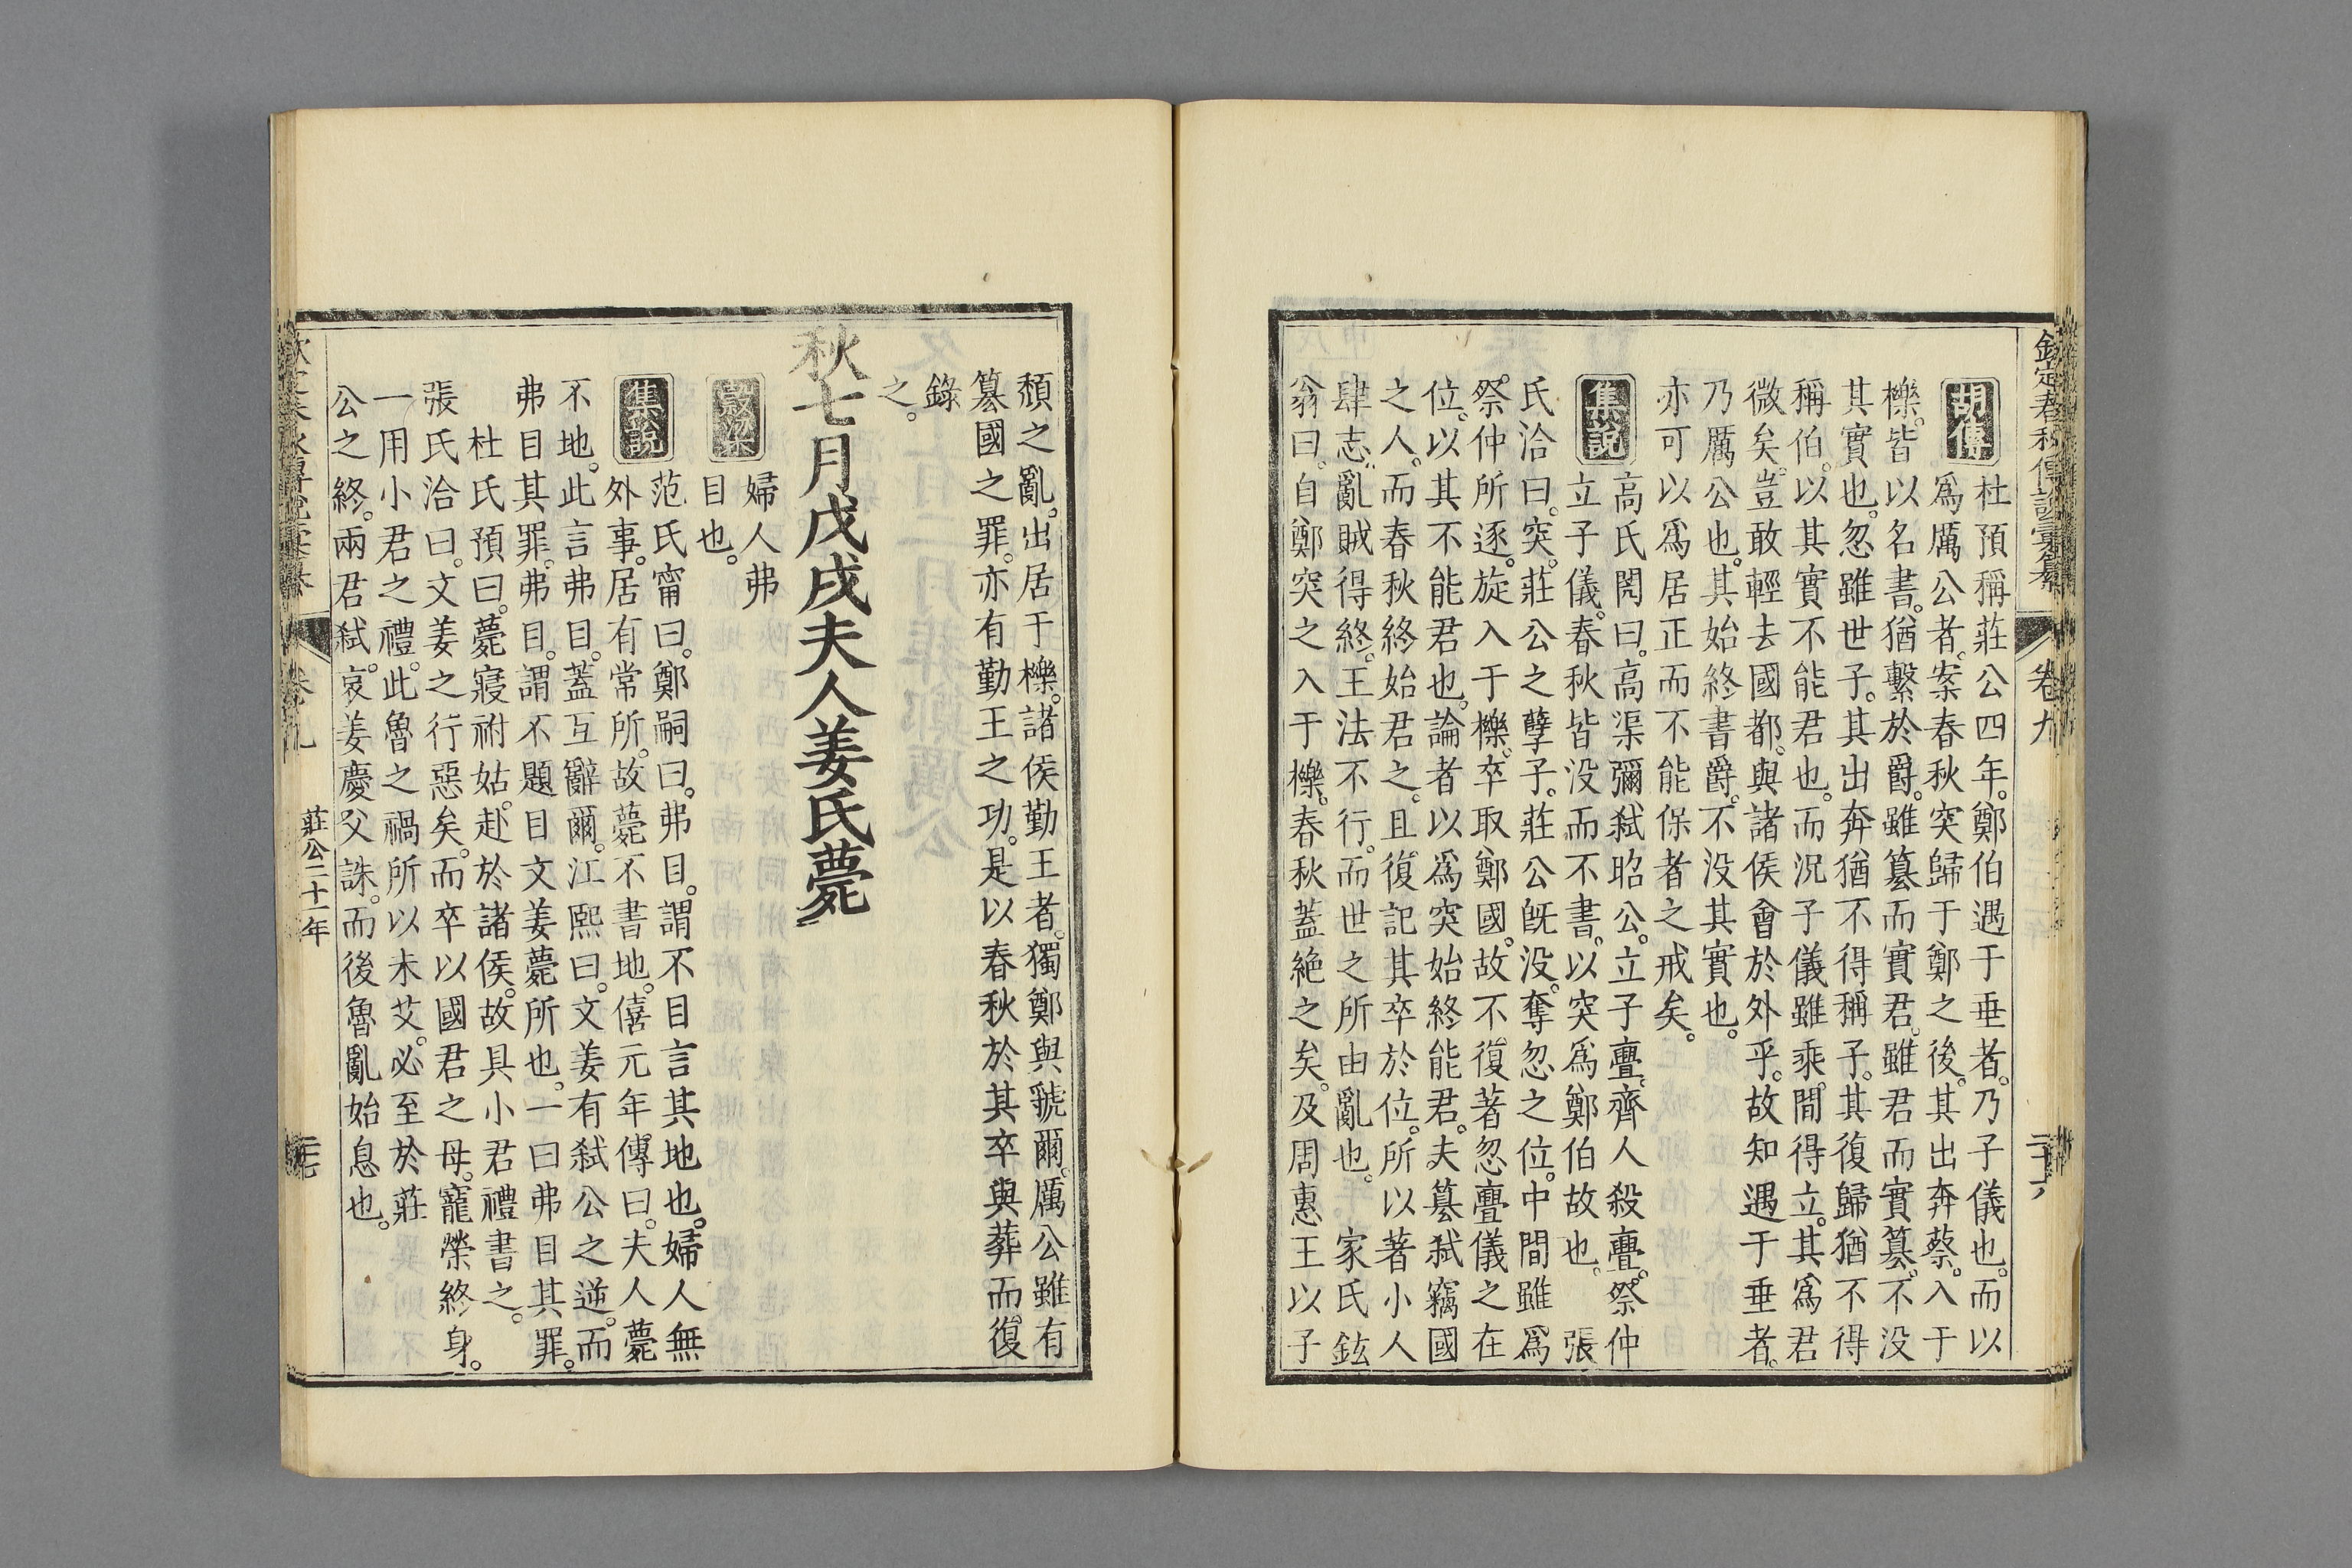 欽定春秋傳說彙纂 卷九 二十六
胡傳
杜預稱莊公四年。鄭伯遇于垂者。乃子儀也。而以
爲厲公者。案春秋突歸于鄭之後。其出奔蔡。入于
櫟。皆以名書。猶繫於爵。雖簒而實君。雖君而實簒。不没
其實也。忽雖世子。其出奔猶不得稱子。其復歸猶不得
稱伯。以其實不能君也。而況子儀雖乘間得立。其爲君
微矣。豈敢輕去國都。與諸侯會於外乎。故知遇于垂者。
乃厲公也。其始終書爵。不没其實也。
亦可以爲居正而不能保者之戒矣。
集說
高氏閌曰。高渠彌弑昭公。立子亹。齊人殺亹。祭仲
立子儀。春秋皆没而不書。以突爲鄭伯故也。 張
氏洽曰。突。莊公之孽子。莊公旣没。奪忽之位。中間雖爲
祭仲所逐。旋入于櫟。卒取鄭國。故不復著忽亹儀之在
位。以其不能君也。論者以爲突始終能君。夫簒弑竊國
之人。而春秋終始君之。且復記其卒於位。所以著小人
肆志。亂賊得終。王法不行。而世之所由亂也。 家氏鉉
翁曰。自鄭突之入于櫟。春秋蓋絶之矣。及周惠王以子
頹之亂。出居于櫟。諸侯勤王者。獨鄭與虢爾。厲公雖有
簒國之罪。亦有勤王之功。是以春秋於其卒與葬而復
錄
之。
秋七月戊戌夫人姜氏薨
穀梁
婦人弗
目也。
范氏甯曰。鄭嗣曰。弗目。謂不目言其地也。婦人無
外事。居有常所。故薨不書地。僖元年傳曰。夫人薨
集說
不地。此言弗目。蓋互辭爾。江熙曰。文姜有弑公之逆。而
弗目其罪。弗目。謂不題目文姜薨所也。一曰弗目其罪。
杜氏預曰。薨寢祔姑。赴於諸侯。故具小君禮書之。
張氏洽曰。文姜之行惡矣。而卒以國君之母。寵榮終身。
一用小君之禮。此魯之禍所以未艾。必至於莊
公之終。兩君弑。哀姜慶父誅。而後魯亂始息也。
欽定春秋傳說彙纂 卷九 莊公二十一年 二十七